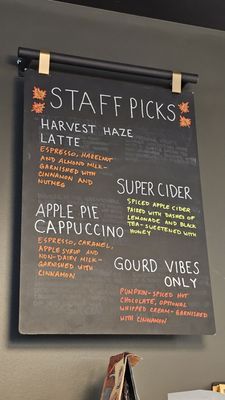 STAFF PICKS
HARVEST HAZE
LATTE
ESPRESSO, HAZELNUT
AND ALMOND MILK-
GARNISHED WITH
CINNAMON AND
NUTMEG
SUPER CIDER
SPICED APPLE CIDER
PAIRED WITH DASHES OF
LEMONADE AND BLACK
TEA-SWEETENED WITH
HONEY
APPLE PIE
CAPPUCCINO
ESPRESSO, CARAMEL,
APPLE SYRUP AND
NON-DAIRY MILK-
GARNISHED WITH
CINNAMON
GOURD VIBES
ONLY
PUMPKIN-SPICED HOT
CHOCOLATE, OPTIONAL
WHIPPED CREAM-GARNISHED
WITH CINNAMON